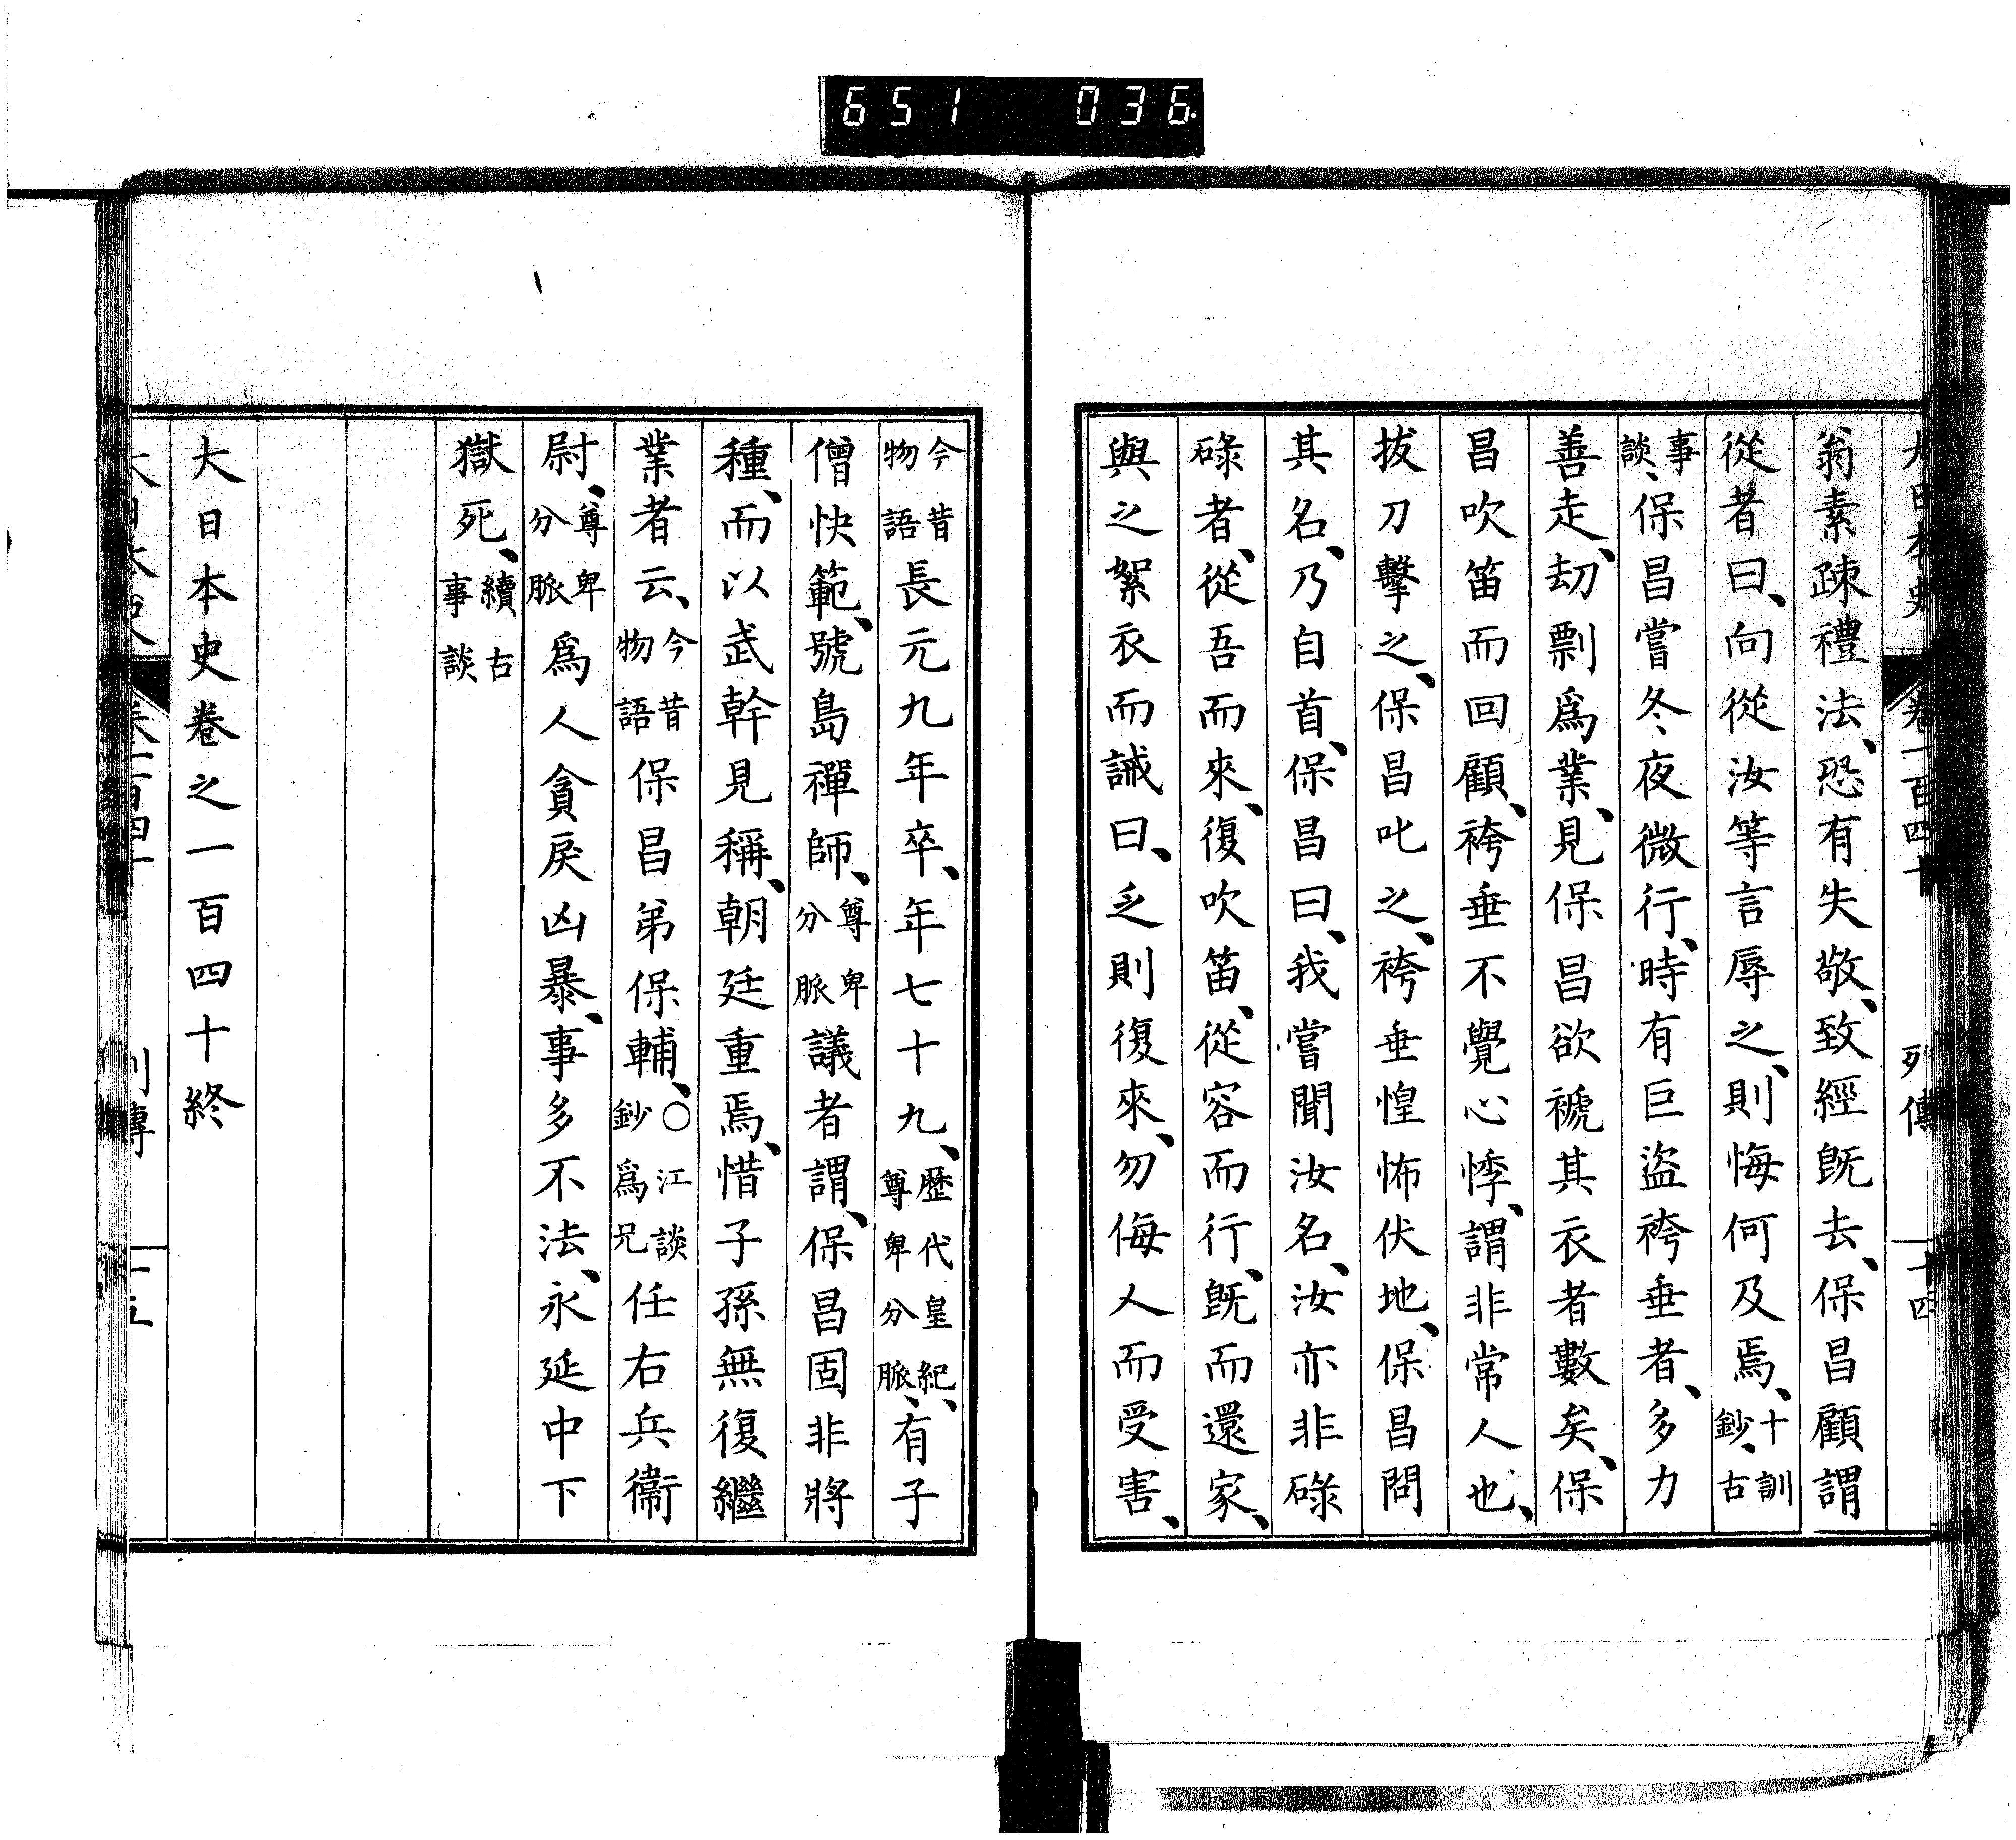 651 036
大日本史 卷一百四十 列傳 十四
翁素疎禮法、恐有失敬、致經既去、保昌顧謂
從者曰、向從汝等言辱之、則悔何及焉、十訓鈔、古
事談、保昌嘗冬夜微行、時有巨盜袴垂者、多力
善走、刧剽爲業、見保昌欲褫其衣者數矣、保
昌吹笛而回顧、袴垂不覺心悸、謂非常人也、
拔刀擊之、保昌叱之、袴垂惶怖伏地、保昌問
其名、乃自首、保昌曰、我嘗聞汝名、汝亦非碌
碌者、從吾而來、復吹笛、從容而行、既而還家、
與之絮衣而誡曰、乏則復來、勿侮人而受害、
今昔物語長元九年卒、年七十九、歷代皇紀、尊卑分脈、有子
僧快範、號島禪師、尊卑分脈議者謂、保昌固非將
種、而以武幹見稱、朝廷重焉、惜子孫無復繼
業者云、今昔物語保昌弟保輔、○江談鈔爲兄任右兵衞
尉、尊卑分脈爲人貪戾凶暴、事多不法、永延中下
獄死、續古事談
大日本史卷之一百四十終
大日本史 卷一百四十 列傳 十五